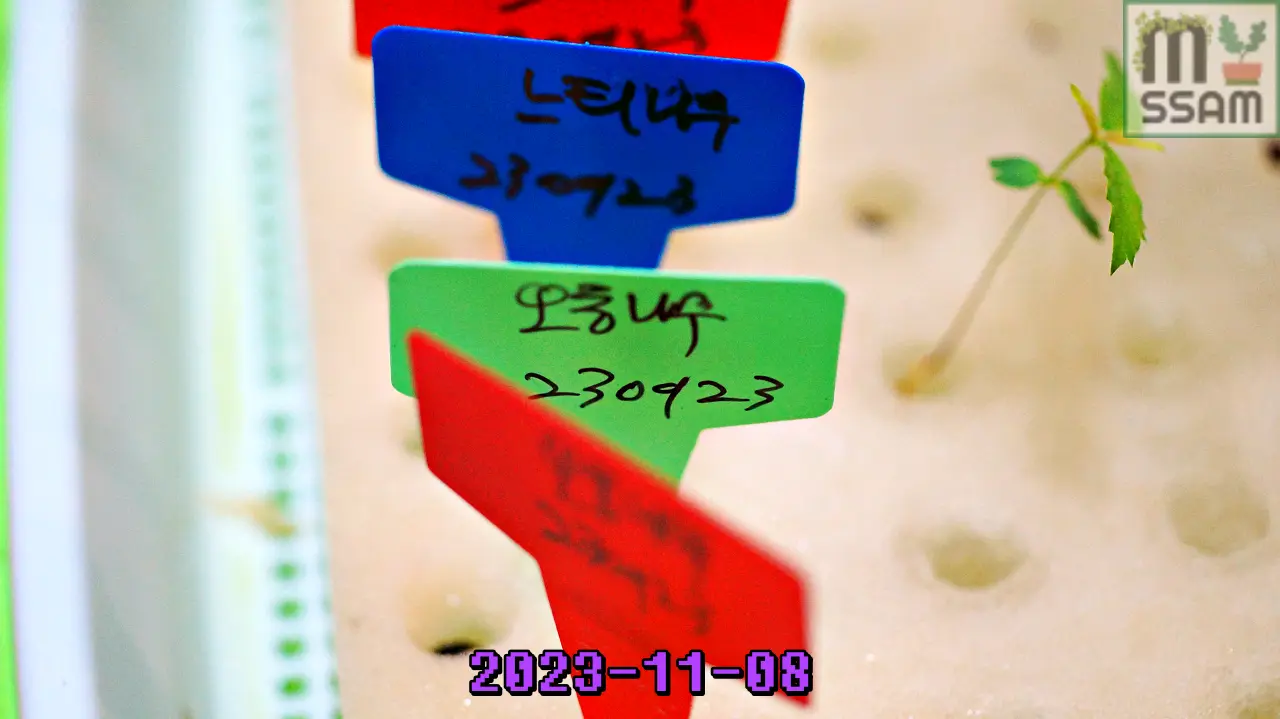 M
SSAM
느티나무
230923
오동나무
230923
2023-11-08